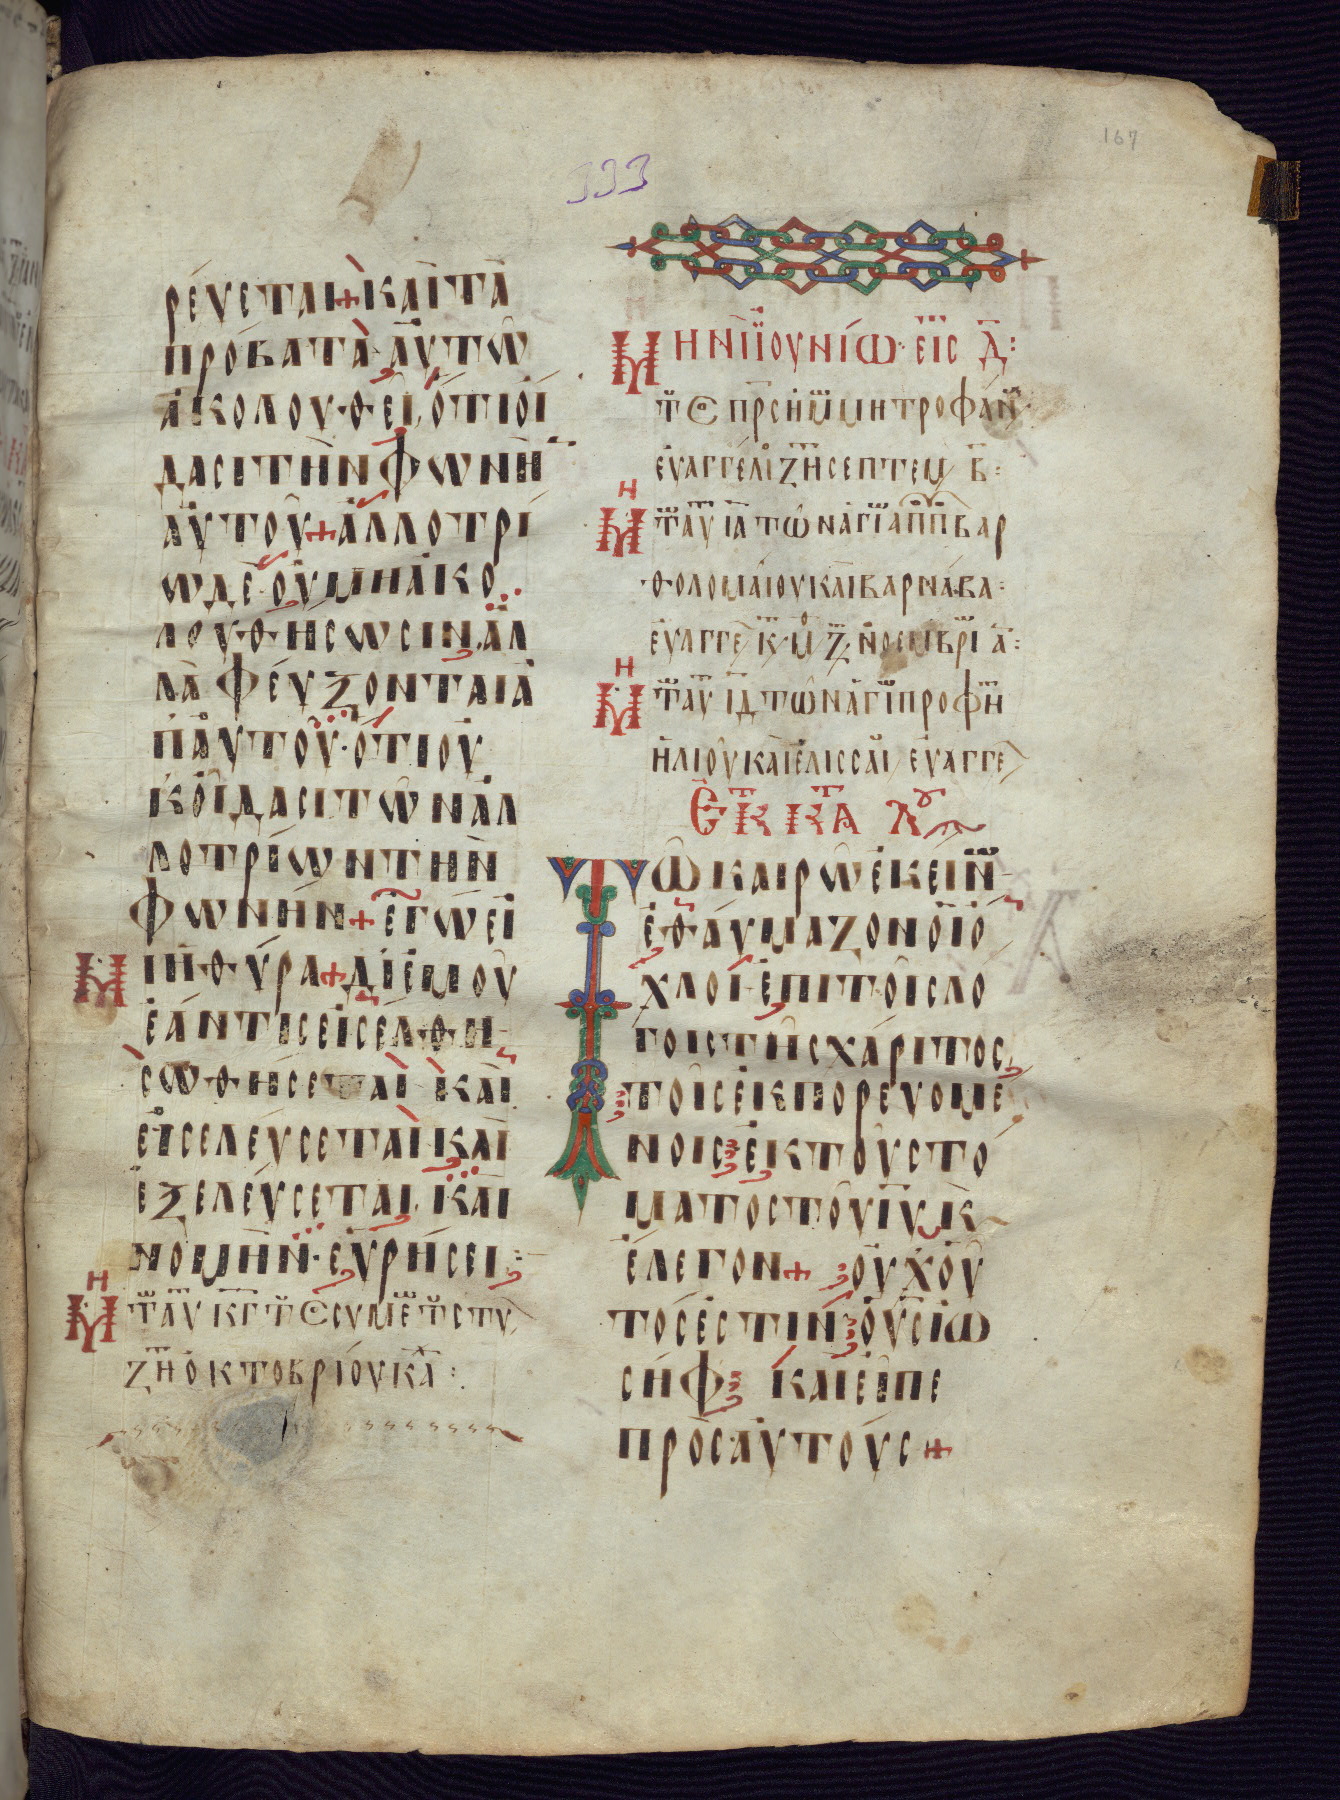 167
533
ρέυεται + καὶ τὰ
πρόβατα αὐτῶ
ἀκολουθεῖ, ὅτι ὀί
δασι τὴν φωνὴ
αὐτοῦ + ἀλλοτρί
ω δὲ οὐ μὴ ἀκο
λουθήσωσιν, ἀλ
λὰ φεύξονται ἀ
π αὐτοῦ · ὅτι οὐ
κ οἴδασι τῶν ἀλ
λοτρίων τὴν
φωνήν + ἐγώ εἰ
μι ἡ θύρα + δι ἐμοῦ
ἐάν τις εἰσέλθη
σωθήσεται καὶ
εἰσελεύσεται καὶ
ἐξελεύσεται, καὶ
νομὴν · εὑρήσει :
Μη τ αυ κγ τ συμε τ στυ
ζη ὀκτοβρίου κα :
Μηνὶ ϊουνίω · εις δ :
τ πρς ἡμ μητροφάν
ευαγγέλι ζη σεπτεμ β :
Μη τ αυ ια των αγι απ βαρ
θολομαίου και βαρνάβα :
ευαγγε κυ μ ζη νοεμβρι α :
Μη τ αυ ιδ των αγι προφη
ηλιοῦ και ελισσαι ευαγγε
Εκ κτα λου
Τῶ καιρῶ ἐκείν
ἐθαύμαζον οἱ ὄ
χλοι ἐπὶ τοῖς λό
γοις τῆς χάριτος
τοῖς ἐκπορευομέ
νοις ἐκ τοῦ στό
ματος τοῦ ιυ κ
ἔλεγον + οὐχ οὗ
τός ἐστιν ὁ υς ιω
σήφ καὶ εἶπε
πρὸς αὐτούς +